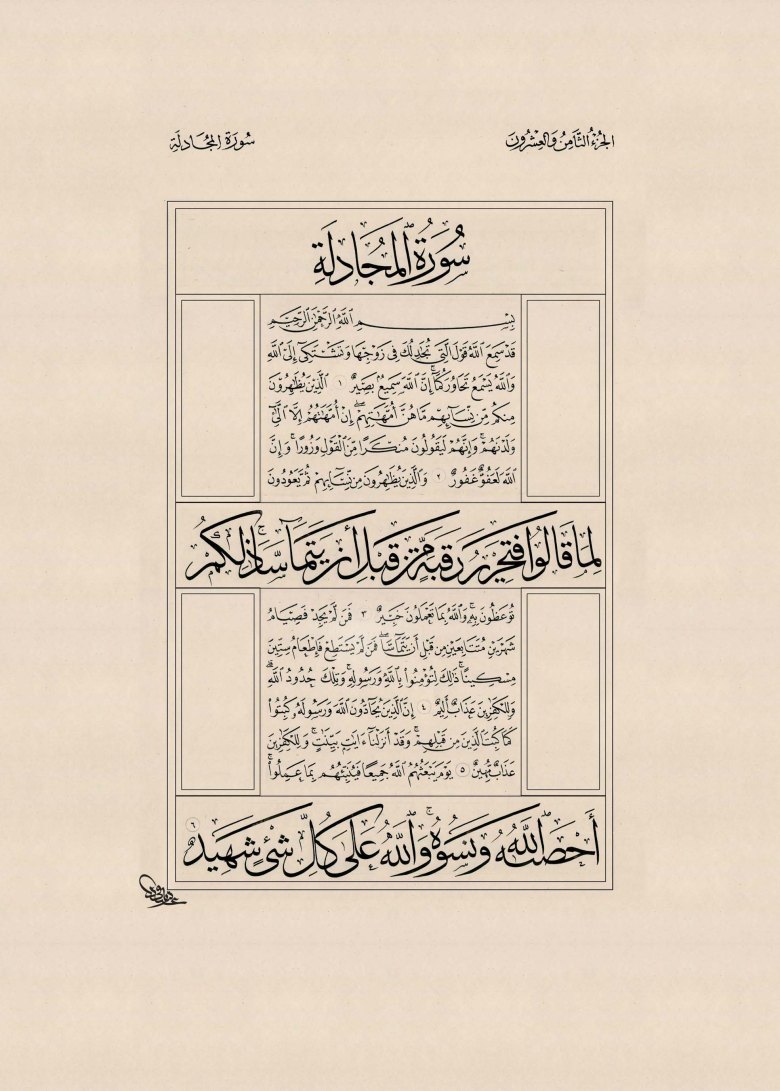 الجُزْءُ الثَّامِنُ وَالْعِشْرُونَ
سُورَةُ المُجَادلَةِ
سُورَةُ ٱلمُجَادلَةِ
بِسْمِ ٱللَّهِ ٱلرَّحْمَٰنِ ٱلرَّحِيمِ
قَدْ سَمِعَ ٱللَّهُ قَوْلَ ٱلَّتِي تُجَٰدِلُكَ فِي زَوْجِهَا وَتَشْتَكِيٓ إِلَى ٱللَّهِ
وَٱللَّهُ يَسْمَعُ تَحَاوُرَكُمَآ ۚ إِنَّ ٱللَّهَ سَمِيعٌۢ بَصِيرٌ ١ ٱلَّذِينَ يُظَٰهِرُونَ
مِنكُم مِّن نِّسَآئِهِم مَّا هُنَّ أُمَّهَٰتِهِمْ ۖ إِنْ أُمَّهَٰتُهُمْ إِلَّا ٱلَّٰٓـِٔي
وَلَدْنَهُمْ ۚ وَإِنَّهُمْ لَيَقُولُونَ مُنكَرًا مِّنَ ٱلْقَوْلِ وَزُورًا ۚ وَإِنَّ
ٱللَّهَ لَعَفُوٌّ غَفُورٌ ٢ وَٱلَّذِينَ يُظَٰهِرُونَ مِن نِّسَآئِهِمْ ثُمَّ يَعُودُونَ
لِمَا قَالُوا۟ فَتَحْرِيرُ رَقَبَةٍ مِّن قَبْلِ أَن يَتَمَآسَّا ۚ ذَٰلِكُمْ
تُوعَظُونَ بِهِۦ ۚ وَٱللَّهُ بِمَا تَعْمَلُونَ خَبِيرٌ ٣ فَمَن لَّمْ يَجِدْ فَصِيَامُ
شَهْرَيْنِ مُتَتَابِعَيْنِ مِن قَبْلِ أَن يَتَمَآسَّا ۖ فَمَن لَّمْ يَسْتَطِعْ فَإِطْعَامُ سِتِّينَ
مِسْكِينًا ۚ ذَٰلِكَ لِتُؤْمِنُوا۟ بِٱللَّهِ وَرَسُولِهِۦ ۚ وَتِلْكَ حُدُودُ ٱللَّهِ ۗ
وَلِلْكَٰفِرِينَ عَذَابٌ أَلِيمٌ ٤ إِنَّ ٱلَّذِينَ يُحَآدُّونَ ٱللَّهَ وَرَسُولَهُۥ كُبِتُوا۟
كَمَا كُبِتَ ٱلَّذِينَ مِن قَبْلِهِمْ ۚ وَقَدْ أَنزَلْنَآ ءَايَٰتٍۭ بَيِّنَٰتٍ ۚ وَلِلْكَٰفِرِينَ
عَذَابٌ مُّهِينٌ ٥ يَوْمَ يَبْعَثُهُمُ ٱللَّهُ جَمِيعًا فَيُنَبِّئُهُم بِمَا عَمِلُوٓا۟ ۚ
أَحْصَىٰهُ ٱللَّهُ وَنَسُوهُ ۚ وَٱللَّهُ عَلَىٰ كُلِّ شَىْءٍ شَهِيدٌ ٦